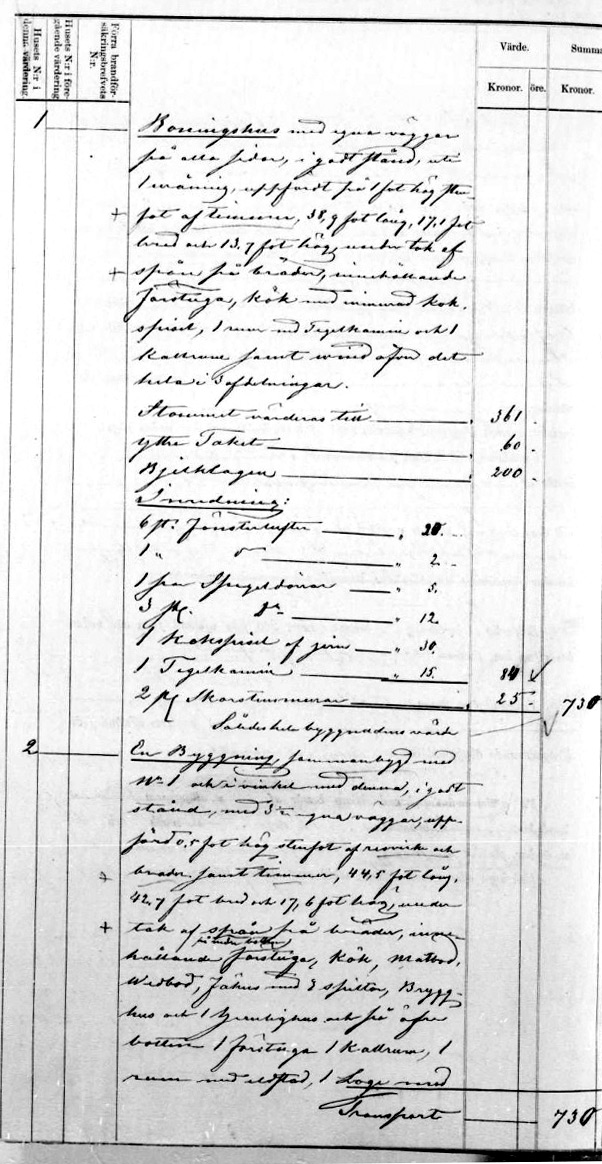 Husets N:r i denna värdering
Husets N:r i föregående värdering
Förra brandförsäkringsbrefvets N:r.
Värde. Summa
Kronor. öre. Kronor.
1 Boningshus med egna väggar
på alla sidor, i godt stånd, uti
1 våning, uppfördt på 1 fot hög sten
+ fot af timmer, 38,9 fot lång, 17,1 fot
bred och 13,7 fot hög, under tak af
+ spån på bräder, innehållande
förstuga, kök med inmurad kok-
spisel, 1 rum med Tegelkamin och 1
Kallrum samt wind öfver det
hela i 3 afdelningar.
Stommet värderas till 361
yttre Taket 60
Bjelklagen 200
Inredning:
6 st. Fönsterlufter " 20.
1 " d:o " 2.
1 par Spegeldörrar " 5.
3 st. d:o " 12.
1 Kokspisel af jern " 30.
1 Tegelkamin " 15. 84
2 st Skorstensmurar 25 730
Således hela byggnadens värde
2 En Byggning, sammanbygd med
N:o 1 och i vinkel med denna, i godt
stånd, med 3:ne egna väggar, upp-
förd 0,5 fot hög stenfot af resvirke och
+ bräder samt timmer, 44,5 fot lång,
42,7 fot bred och 17,6 fot hög, under
+ tak af spån på bräder, inne-
på nedre botten
hållande förstuga, Kök, Matbod,
Wedbod, Fähus med 3 spiltor, Brygg-
hus och 1 hemlighus och på öfre
botten 1 förstuga 1 Kallrum, 1
rum med eldstad, 1 Loge med
Transport 730